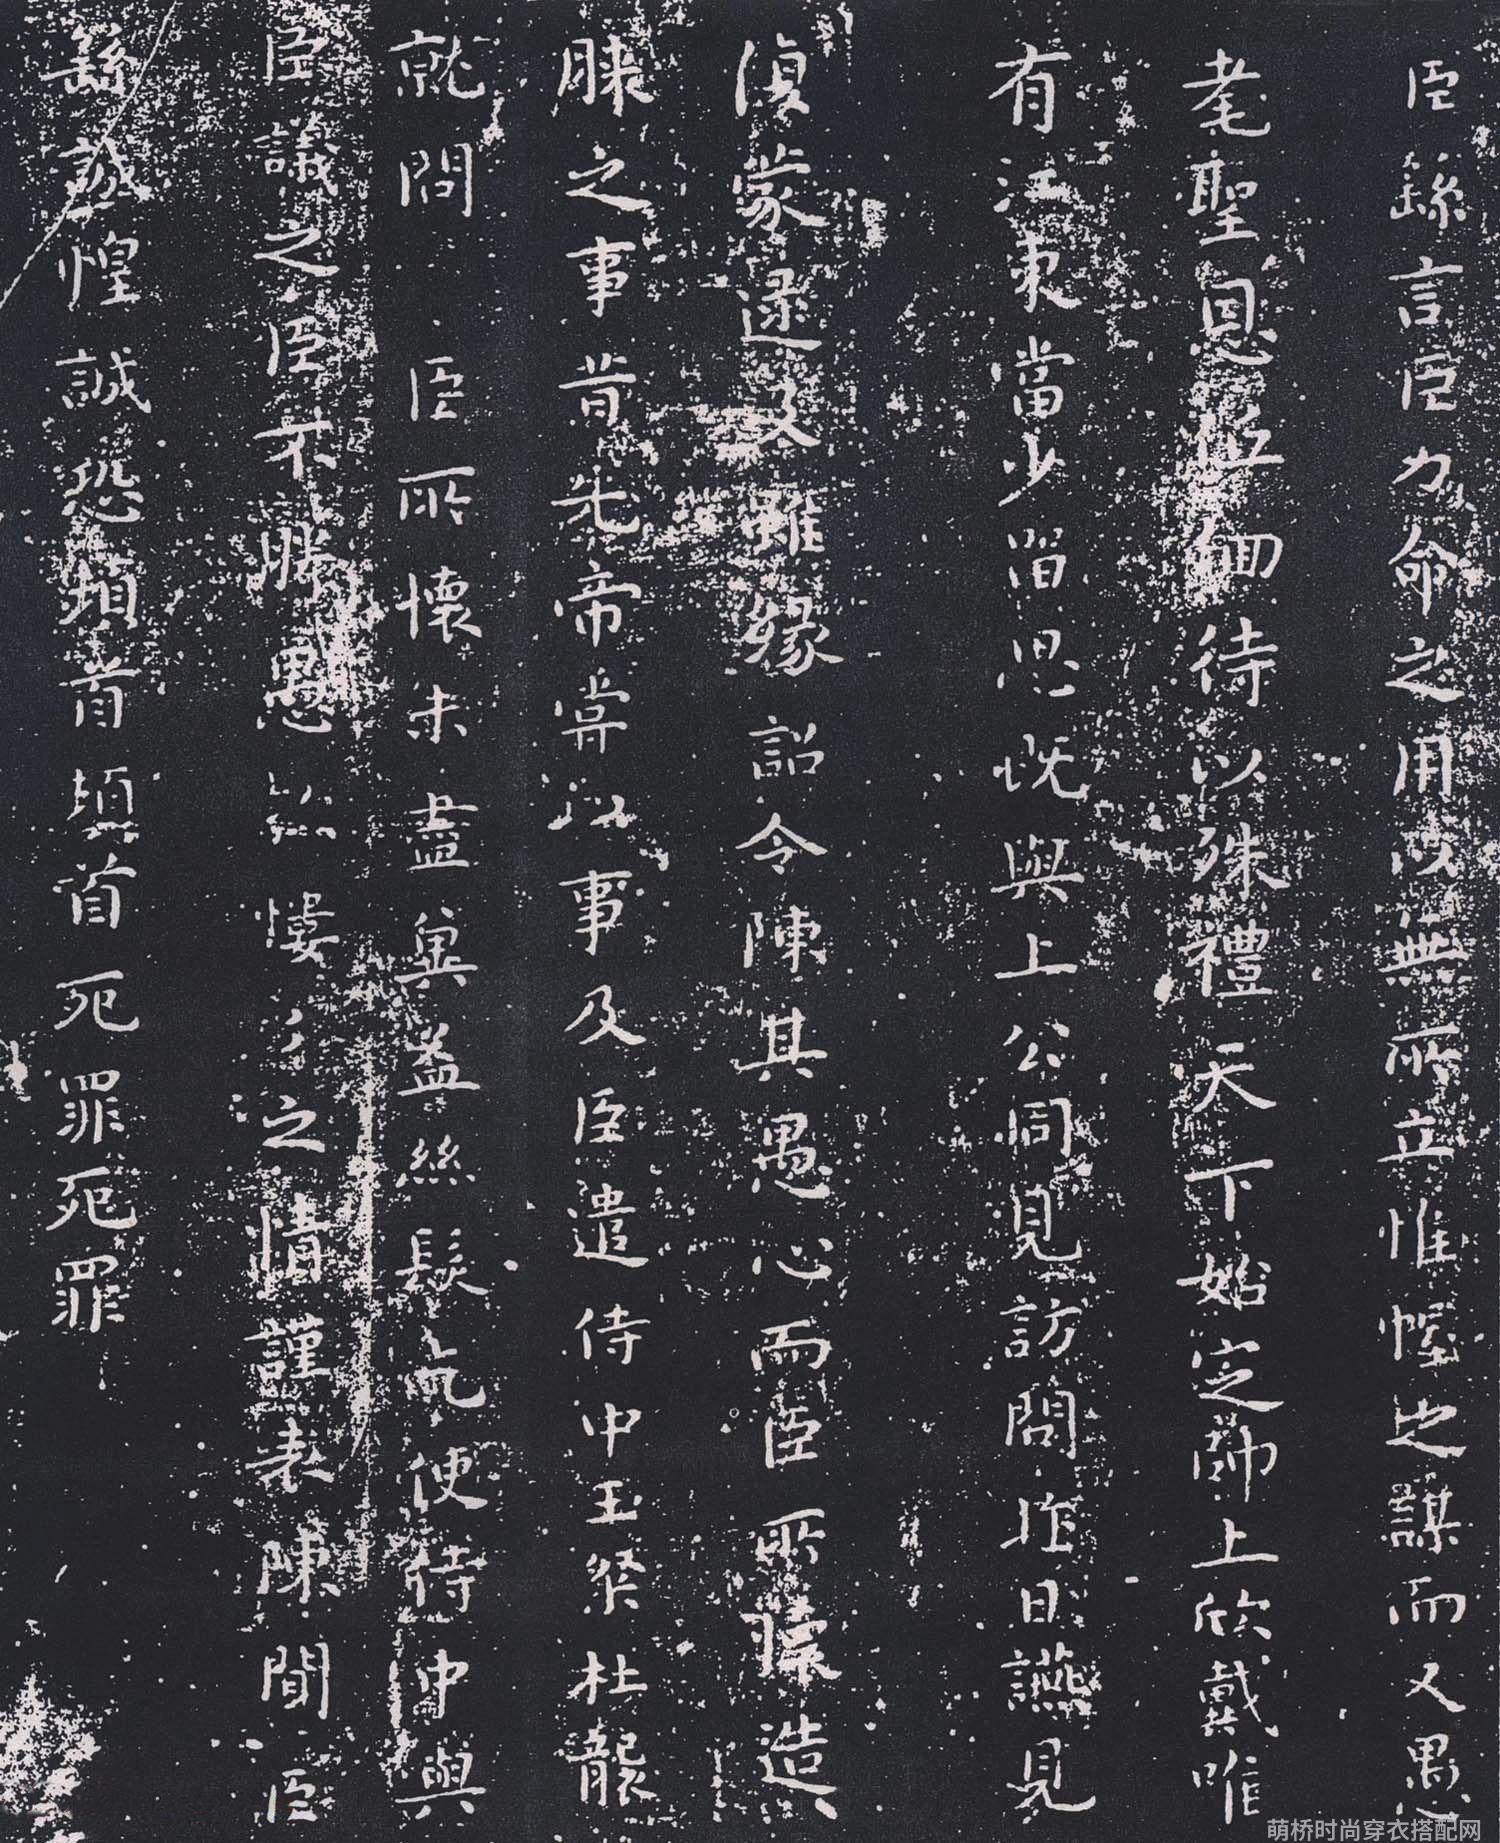 臣繇言臣力命之用以無所立惟幄之謀而又愚
耄聖恩低徊待以殊禮天下始定師上欣戴唯
有江東當少留思既與上公同見訪問昨日讌見
復蒙逮及雖緣詔令陳其愚心而臣所懷造
膝之事昔先帝嘗以事及臣遣侍中王粲杜襲
就問臣所懷未盡冀益絲髮氣使侍中與
臣議之臣不勝愚以慺慺之情謹表陳聞臣
繇誠惶誠恐頓首頓首死罪死罪
萌桥时尚穿衣搭配网